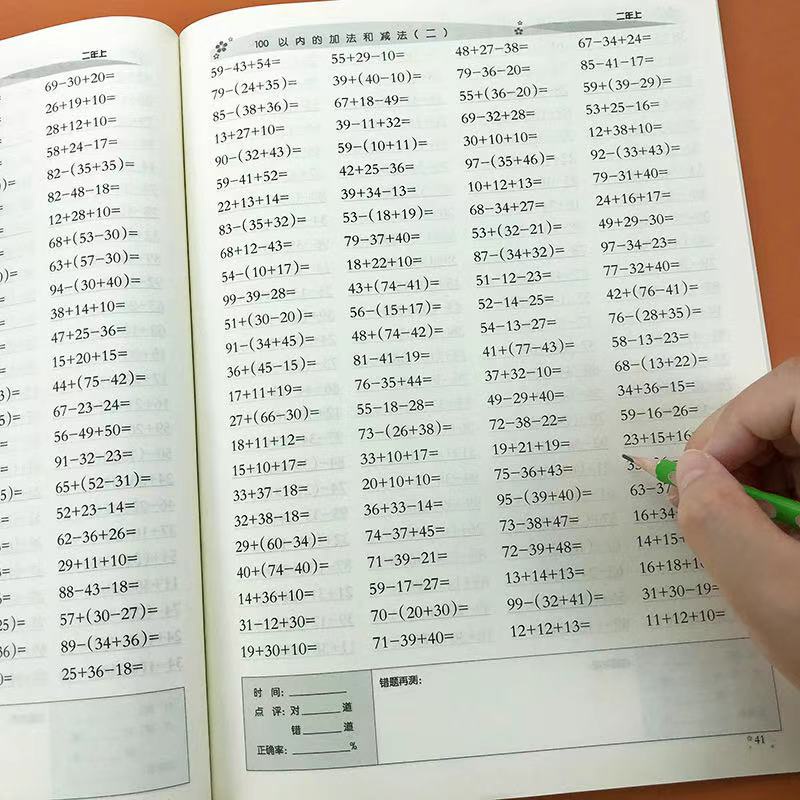 二年上
69-30+20=
26+19+10=
28+12+10=
58+24-17=
82-(35+35)=
82-48-18=
12+28+10=
68+(53-30)=
63+(57-30)=
94-(30+40)=
38+14+10=
47+25-36=
15+20+15=
44+(75-42)=
67-23-24=
56-49+50=
91-32-23=
65+(52-31)=
52+23-14=
62-36+26=
29+11+10=
88-43-18=
57+(30-27)=
89-(34+36)=
25+36-18=
100 以内的加法和减法(二)
二年上
59-43+54= 55+29-10= 48+27-38= 67-34+24=
79-(24+35)= 39+(40-10)= 79-36-20= 85-41-17=
85-(38+36)= 67+18-49= 55+(36-20)= 59+(39-29)=
13+27+10= 39-11+32= 69-32+28= 53+25-16=
90-(32+43)= 59-(10+11)= 30+10+10= 12+38+10=
59-41+52= 42+25-36= 97-(35+46)= 92-(33+43)=
22+13+14= 39+34-13= 10+12+13= 79-31+40=
83-(35+32)= 53-(18+19)= 68-34+27= 24+16+17=
68+12-43= 79-37+40= 53+(32-21)= 49+29-30=
54-(10+17)= 18+22+10= 87-(34+32)= 97-34-23=
99-39-28= 43+(74-41)= 51-12-23= 77-32+40=
51+(30-20)= 56-(15+17)= 52-14-25= 42+(76-41)=
91-(34+45)= 48+(74-42)= 54-13-27= 76-(28+35)=
36+(45-15)= 81-41-19= 41+(77-43)= 58-13-23=
17+11+19= 76-35+44= 37+32-10= 68-(13+22)=
27+(66-30)= 55-18-28= 49-29+40= 34+36-15=
18+11+12= 73-(26+38)= 72-38-22= 59-16-26=
15+10+17= 33+10+17= 19+21+19= 23+15+16
33+37-18= 20+10+10= 75-36+43=
32+38-18= 36+33-14= 95-(39+40)= 63-37
29+(60-34)= 74-37+45= 73-38+47= 16+34
40+(74-40)= 71-39-21= 72-39+48= 14+15
14+36+10= 59-17-27= 13+14+13= 16+18+
31-12+30= 70-(20+30)= 99-(32+41)= 31+30-19=
19+30+10= 71-39+40= 12+12+13= 11+12+10=
时 间:________
点 评:对______道
错______道
正确率:________%
错题再测:
41